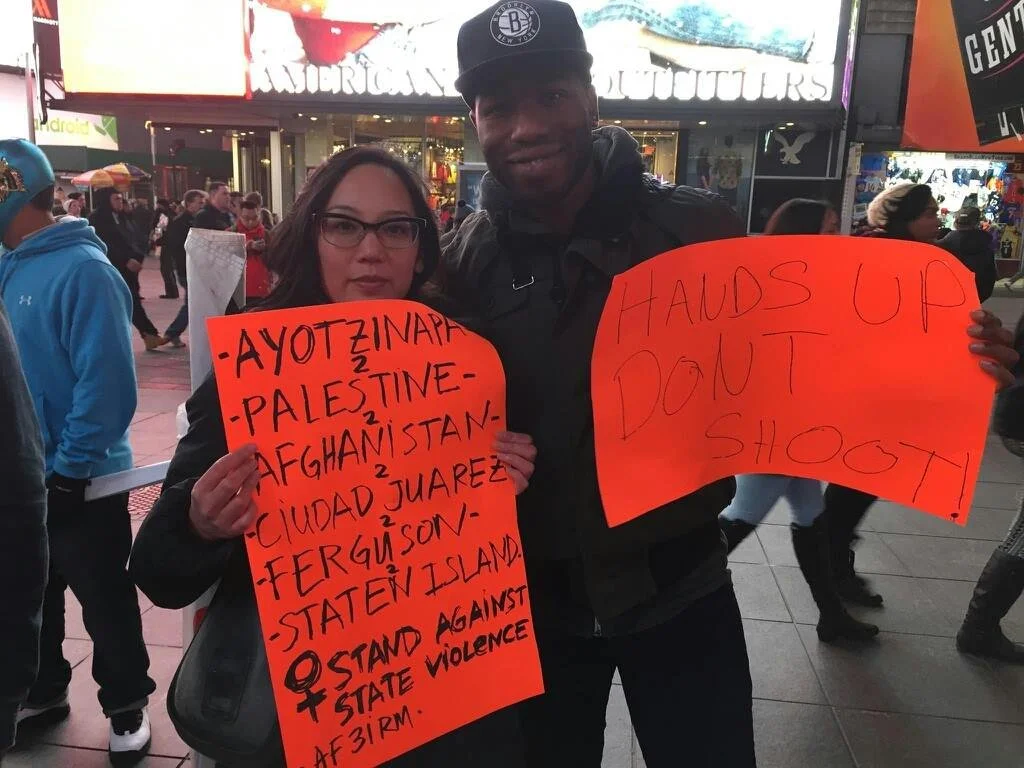 AMERICAN OUTFITTERS
BROOKLYN
B
NEW YORK
android
GENT
-AYOTZINAPA
2
-PALESTINE-
2
-AFGHANISTAN-
2
-CIUDAD JUAREZ
2
-FERGUSON-
2
-STATEN ISLAND.
♀ STAND AGAINST
STATE VIOLENCE
AF3IRM.
HANDS UP
DON'T
SHOOT!